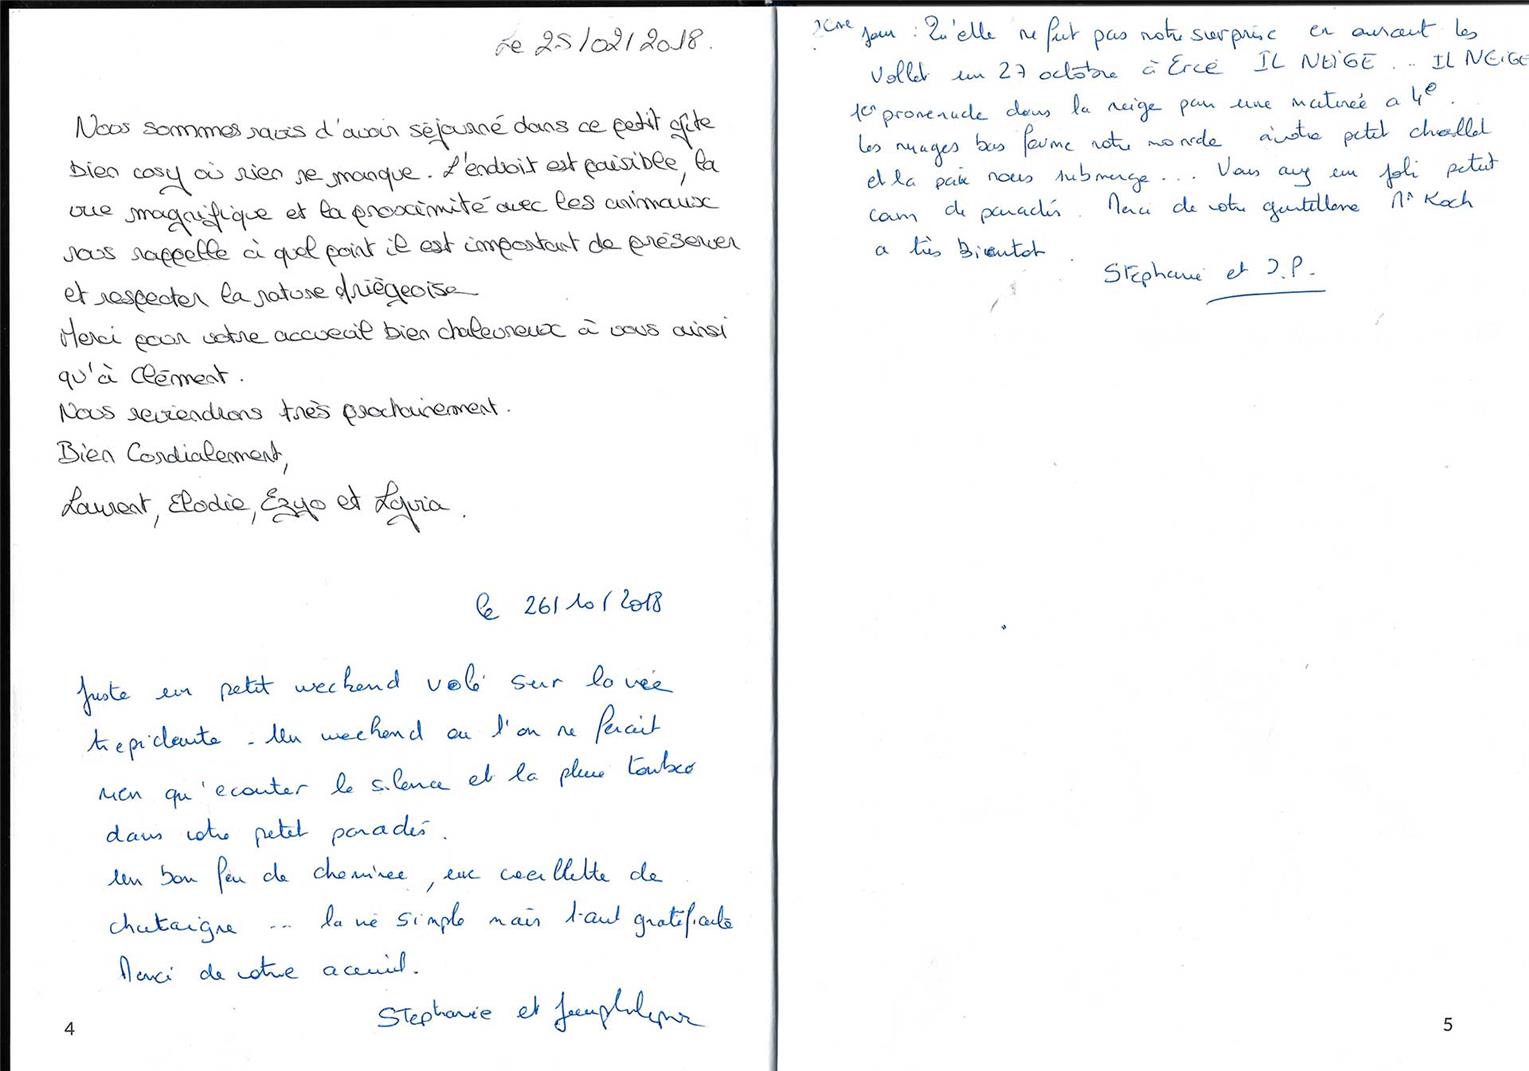 Le 25/02/2018.
Nous sommes ravis d'avoir séjourné dans ce petit gîte
bien cosy où rien ne manque. L'endroit est paisible, la
vue magnifique et la proximité avec les animaux
nous rappelle à quel point il est important de préserver
et respecter la nature Ariégeoise
Merci pour votre accueil bien chaleureux à vous ainsi
qu'à Clément.
Nous reviendrons très prochainement.
Bien Cordialement,
Laurent, Elodie, Ezyo et Lyvia.
le 26/10/2018
Juste un petit weekend volé sur la vie
trepidante - Un weekend ou l'on ne ferait
rien qu'ecouter le silence et la pluie tomber
dans votre petit paradis.
Un bon feu de cheminee, une cueillette de
chataigne ... la vie simple mais tant gratifiante
Merci de votre acceuil.
Stephanie et Jeanphilippe
4
2eme Jour : Qu'elle ne fut pas notre surprise en ouvrant les
vollet un 27 octobre à Ercé IL NEIGE... IL NEIGE
1er promenade dans la neige par une matineé a 4°.
les nuages bas ferme notre monde à votre petit challet
et la paix nous submerge... Vous avez un joli petit
coin de paradis. Merci de votre gentillesse Mr Koch
a très Bientot.
Stephanie et J.P.
5